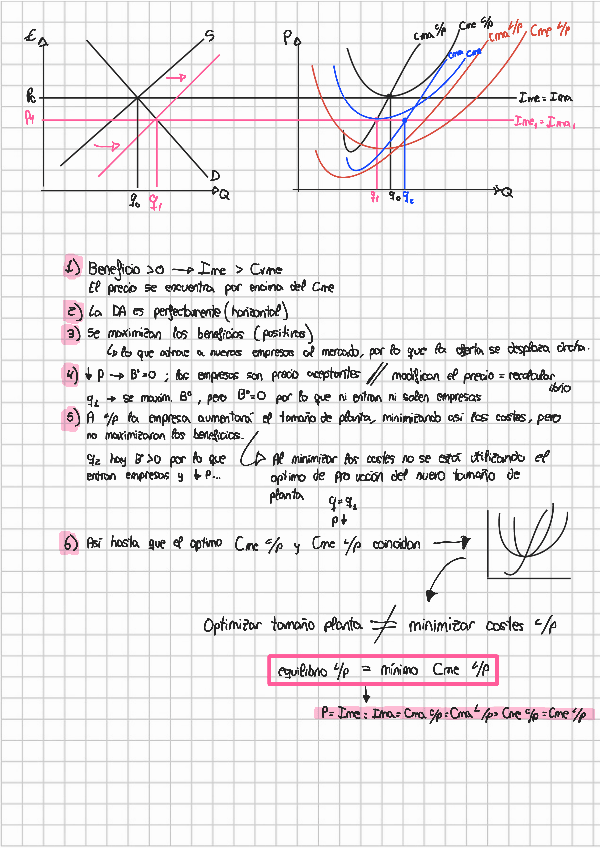 £
S
P₀
P₁
D
Q
q₀
q₁
P
Cma c/p
Cme c/p
Cma L/p
Cme L/p
Cma
Cme
Ime = Ima
Ime₁ = Ima₁
q₁
q₀
q₂
Q
1) Beneficio >0 → Ime > Cme
El precio se encuentra por encima del Cme
2) La DA es perfectamente (horizontal)
3) Se maximizan los beneficios (positivos)
↳ lo que atrae a nuevas empresas al mercado, por lo que la oferta se desplaza drcha.
4) ↓ P → Bº=0 ; las empresas son precio aceptantes // modifican el precio = reequilibrio
q₁ → se maxim. Bº, pero Bº=0 por lo que ni entran ni salen empresas
5) A c/p la empresa aumentará el tamaño de planta, minimizando así los costes, pero
no maximizaran los beneficios.
q₂ hay Bº>0 por lo que
entran empresas y ↓ P...
Al minimizar los costes no se está utilizando el
optimo de producción del nuevo tamaño de
planta
q = q₂
P ↓
6) Así hasta que el optimo Cme c/p y Cme L/p coincidan →
Optimizar tamaño planta ≠ minimizar costes L/p
equilibrio L/p = mínimo Cme L/p
P = Ime = Ima = Cma c/p = Cma L/p = Cme c/p = Cme L/p